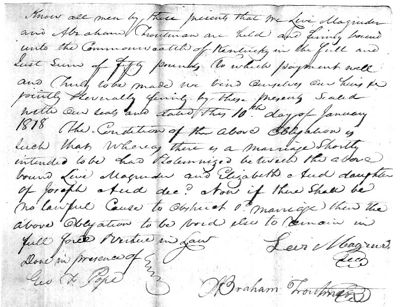 Know all men by these presents that we Levi Magruder
and Abraham Troutman are held and firmly bound
unto the Commonwealth of Kentucky in the full and
Just Sum of fifty pounds to which payment well
and Truly to be made we bind ourselves our heirs &c
jointly & severally firmly by these presents Sealed
with our seals and dated this 10th day of January
1818 The Condition of the above Obligation is
Such that Whereas there is a marriage Shortly
intended to be had & solemnized between the above
bound Levi Magruder and Elizabeth Aud daughter
of Joseph Aud decd Now if there Shall be
no lawful Cause to Obstruct sd marriage then the
above Obligation to be void else to remain in
full force & virtue in law
Levi Magruder
Done in presence of
Geo F Pope
Abraham Troutman